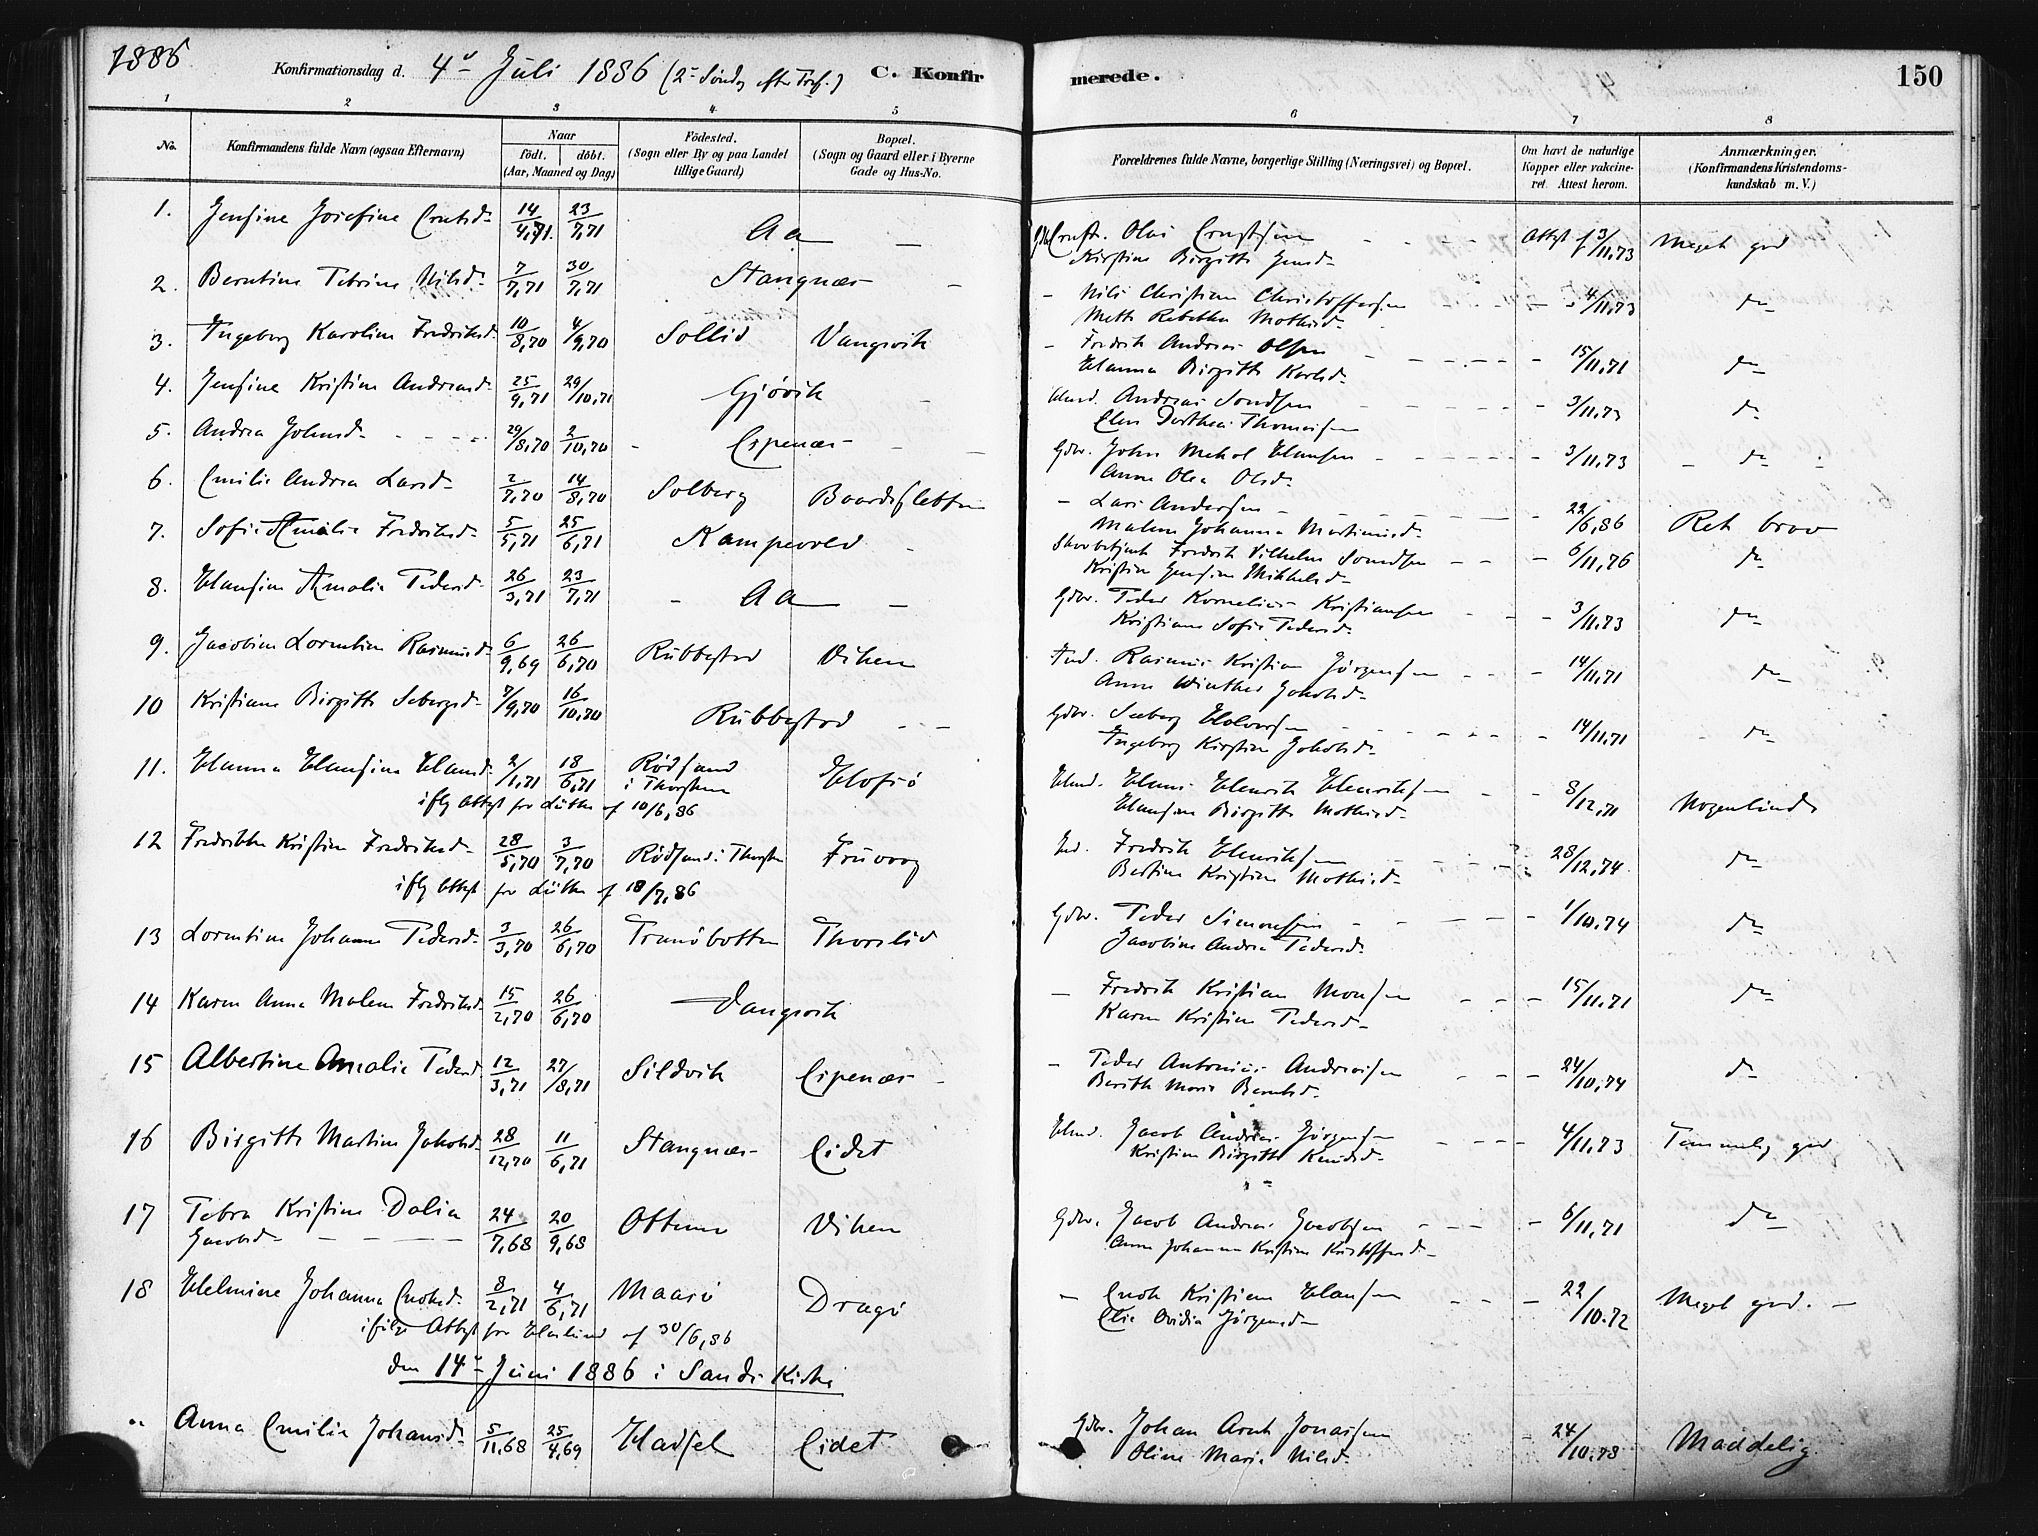 1886
Konfirmationsdag d. 4de Juli 1886 (2den Søndag efter Tref.) C. Konfirmerede. 150
1 2 3 4 5 6 7 8
No. Konfirmandens fulde Navn (ogsaa Efternavn) Naar født. døbt. (Aar, Maaned og Dag) Fødested. (Sogn eller By og paa Landet tillige Gaard) Bopæl. (Sogn og Gaard eller i Byerne Gade og Hus-No. Forældrenes fulde Navne, borgerlige Stilling (Næringsvei) og Bopæl. Om havt de naturlige Kopper eller vakcineret. Attest herom. Anmærkninger. (Konfirmandens Kristendomskundskab m. V.)
1. Jensine Josefine Erntsd. 14/4,71. 23/7,71 Aa — Gdbr. Ernst Olai Ernstsen Attest f 3/11,73 Meget god
Kirstine Birgitte Jensd.
2. Berntine Petrine Nilsd. 7/7,71 30/7,71 Stangnæs — - Nils Christian Christoffersen - 4/11,73 do
Mette Rebekka Mathisd.
3. Ingeborg Karoline Fredriksd. 10/8,70 4/9,70 Sollid Vangsvik - Fredrik Andreas Olsen - 15/11,71 do
Hanna Birgitte Karlsd.
4. Jensine Kristine Andreasd. 25/9,71 29/10,71 Gjøvik - Husmd. Andreas Sondsen - 3/11,73 do
Elen Dorthea Thomassen
5. Andrea Johnsd. 29/8,70 2/10,70 - Espenæs - Gdbr. John Mekal Hansen - 3/11,73 - do
Anne Olea Olsd.
6. Emilie Andrea Larsd. 2/7,70 14/8,70 Solberg Baardsletten - Lars Andersen - 22/6,86 Ret brav
Malene Johanna Martinusd.
7. Sofie Amalie Fredriksd. 5/5,71 25/6,71 Kampevold - Fredrik Vilhelm Sondsen - 6/11,76 do
Kristine Jensine Mikkelsd.
8. Hansine Amalie Pedersd. 26/3,71 23/7,71 - Aa — Gdbr. Peder Kornelius Kristiansen - 3/11,73 do
Kristiane Sofie Pedersd.
9. Jacobine Lorentine Rasmusd. 6/9,69 26/6,70 Rubbestad Viken Ind. Rasmus Kristian Jørgensen - 14/11,71 do
Anne Winther Jakobsd.
10 Kristiane Birgitte Sebergsd. 7/9,70 16/10,70 Rubbestad - - Gdbr. Seeberg Halvorsen - 14/11,71 do
Ingeborg Kirstine Jakobsd.
11. Hanna Hansine Hansd. 2/1,71 18/6,71 Rødsand i Thorsken Hofsø Husmd. Hans Henrik Henriksen - 8/12,71 Nogenlunde
iflg Attest fra Lüthe af 10/6,86 Hansine Birgitte Mathisd.
12 Fredrikke Kristine Fredriksd. 28/5,70 3/7,70 Rødsand i Thorsken Fruvaag Ind. Fredrik Henriksen - 28/12,74 do
iflg Attest fra Lüthe af 18/7,86 Bertine Kristine Mathisd.
13 Lorentine Johanne Pedersd. 3/3,70 26/6,70 Tranøbotten Thorslid Gdbr. Peder Simonsen - 1/10,74 do
Jacobine Andrea Pedersd.
14 Karen Anna Malene Fredriksd. 15/2,70 26/6,70 Vangsvik - Fredrik Kristian Monsen - 15/11,71 do
Karen Kristine Pedersd.
15 Albertine Amalie Pedersd. 12/3,71 27/8,71 Sildvik Espenæs - - Peder Antonius Andreasen - 24/10,74 do
Berith Marie Berntsd.
16 Birgitte Martine Jakobsd. 28/12,70 11/6,71 Stangnæs Eidet Husmd. Jacob Andreas Jørgensen - 4/11,73 Temmelig god
Kristine Birgitte Knudsd.
17 Petra Kristine Dalia 24/7,68 20/9,68 Ottenes Viken Gdbr. Jacob Andreas Jacobsen - 6/11,71 do
Jacobsd. Anne Johanna Kristine Kristoffersd.
18 Helmine Johanna Enoksd. 8/2,71 4/6,71 Maasø Dragø - Enok Kristian Hansen - 22/10.72 Meget god.
ifølge Attest fra af 30/6,86 Elie Ovidia Jørgensd.
den 14de Juni 1886 i Sands Kirke
" Anna Emilie Johansd. 5/11,68 25/4,69 Hadsel Eidet Gdbr. Johan Arnt Jonassen - 24/10.78 Maadelig
Oline Marie Nilsd.